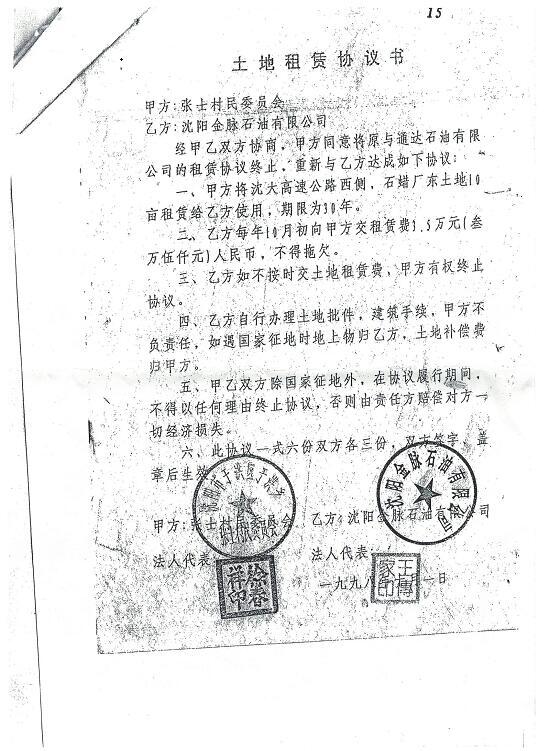 15
土地租赁协议书
甲方:张士村民委员会
乙方:沈阳金脉石油有限公司
经甲乙双方协商,甲方同意将原与通达石油有限
公司的租赁协议终止,重新与乙方达成如下协议:
一、甲方将沈大高速公路西侧,石蜡厂东土地10
亩租赁给乙方使用,期限为30年。
二、乙方每年10月初向甲方交租赁费3.5万元(叁
万伍仟元)人民币,不得拖欠。
三、乙方如不按时交土地租赁费,甲方有权终止
协议。
四、乙方自行办理土地批件,建筑手续,甲方不
负责任,如遇国家征地时地上物归乙方,土地补偿费
归甲方。
五、甲乙双方除国家征地外,在协议履行期间,
不得以任何理由终止协议,否则由责任方赔偿对方一
切经济损失。
六、此协议一式六份双方各三份,双方签字,盖
章后生效
沈阳金脉石油有限公司
甲方:张士村民委员会 乙方:沈阳金脉石油有限公司
法人代表 法人代表:
一九九八年 月一日